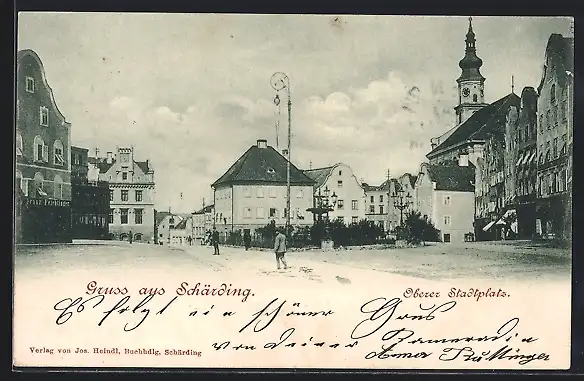 Franz Friedlbauer
Gruss aus Schärding.
Oberer Stadtplatz.
Es folgt ein schöner Gruss
von Deiner Kameradin
Anna
Verlag von Jos. Heindl, Buchhdlg, Schärding